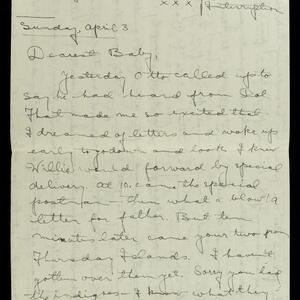 x x x / Interruption
Sunday, April 3
Dearest Baby,
Yesterday Otto called up to
say he had heard from Sol
That made me so excited that
I dreamed of letters and woke up
early to go down and look. I knew
Willie would forward by special
delivery. At 10. came the special
postman - then what a blow! a
letter for father. But ten
minutes later came your two from
Thursday Islands. I haven't
gotten over them yet. Sorry you had
I know what they